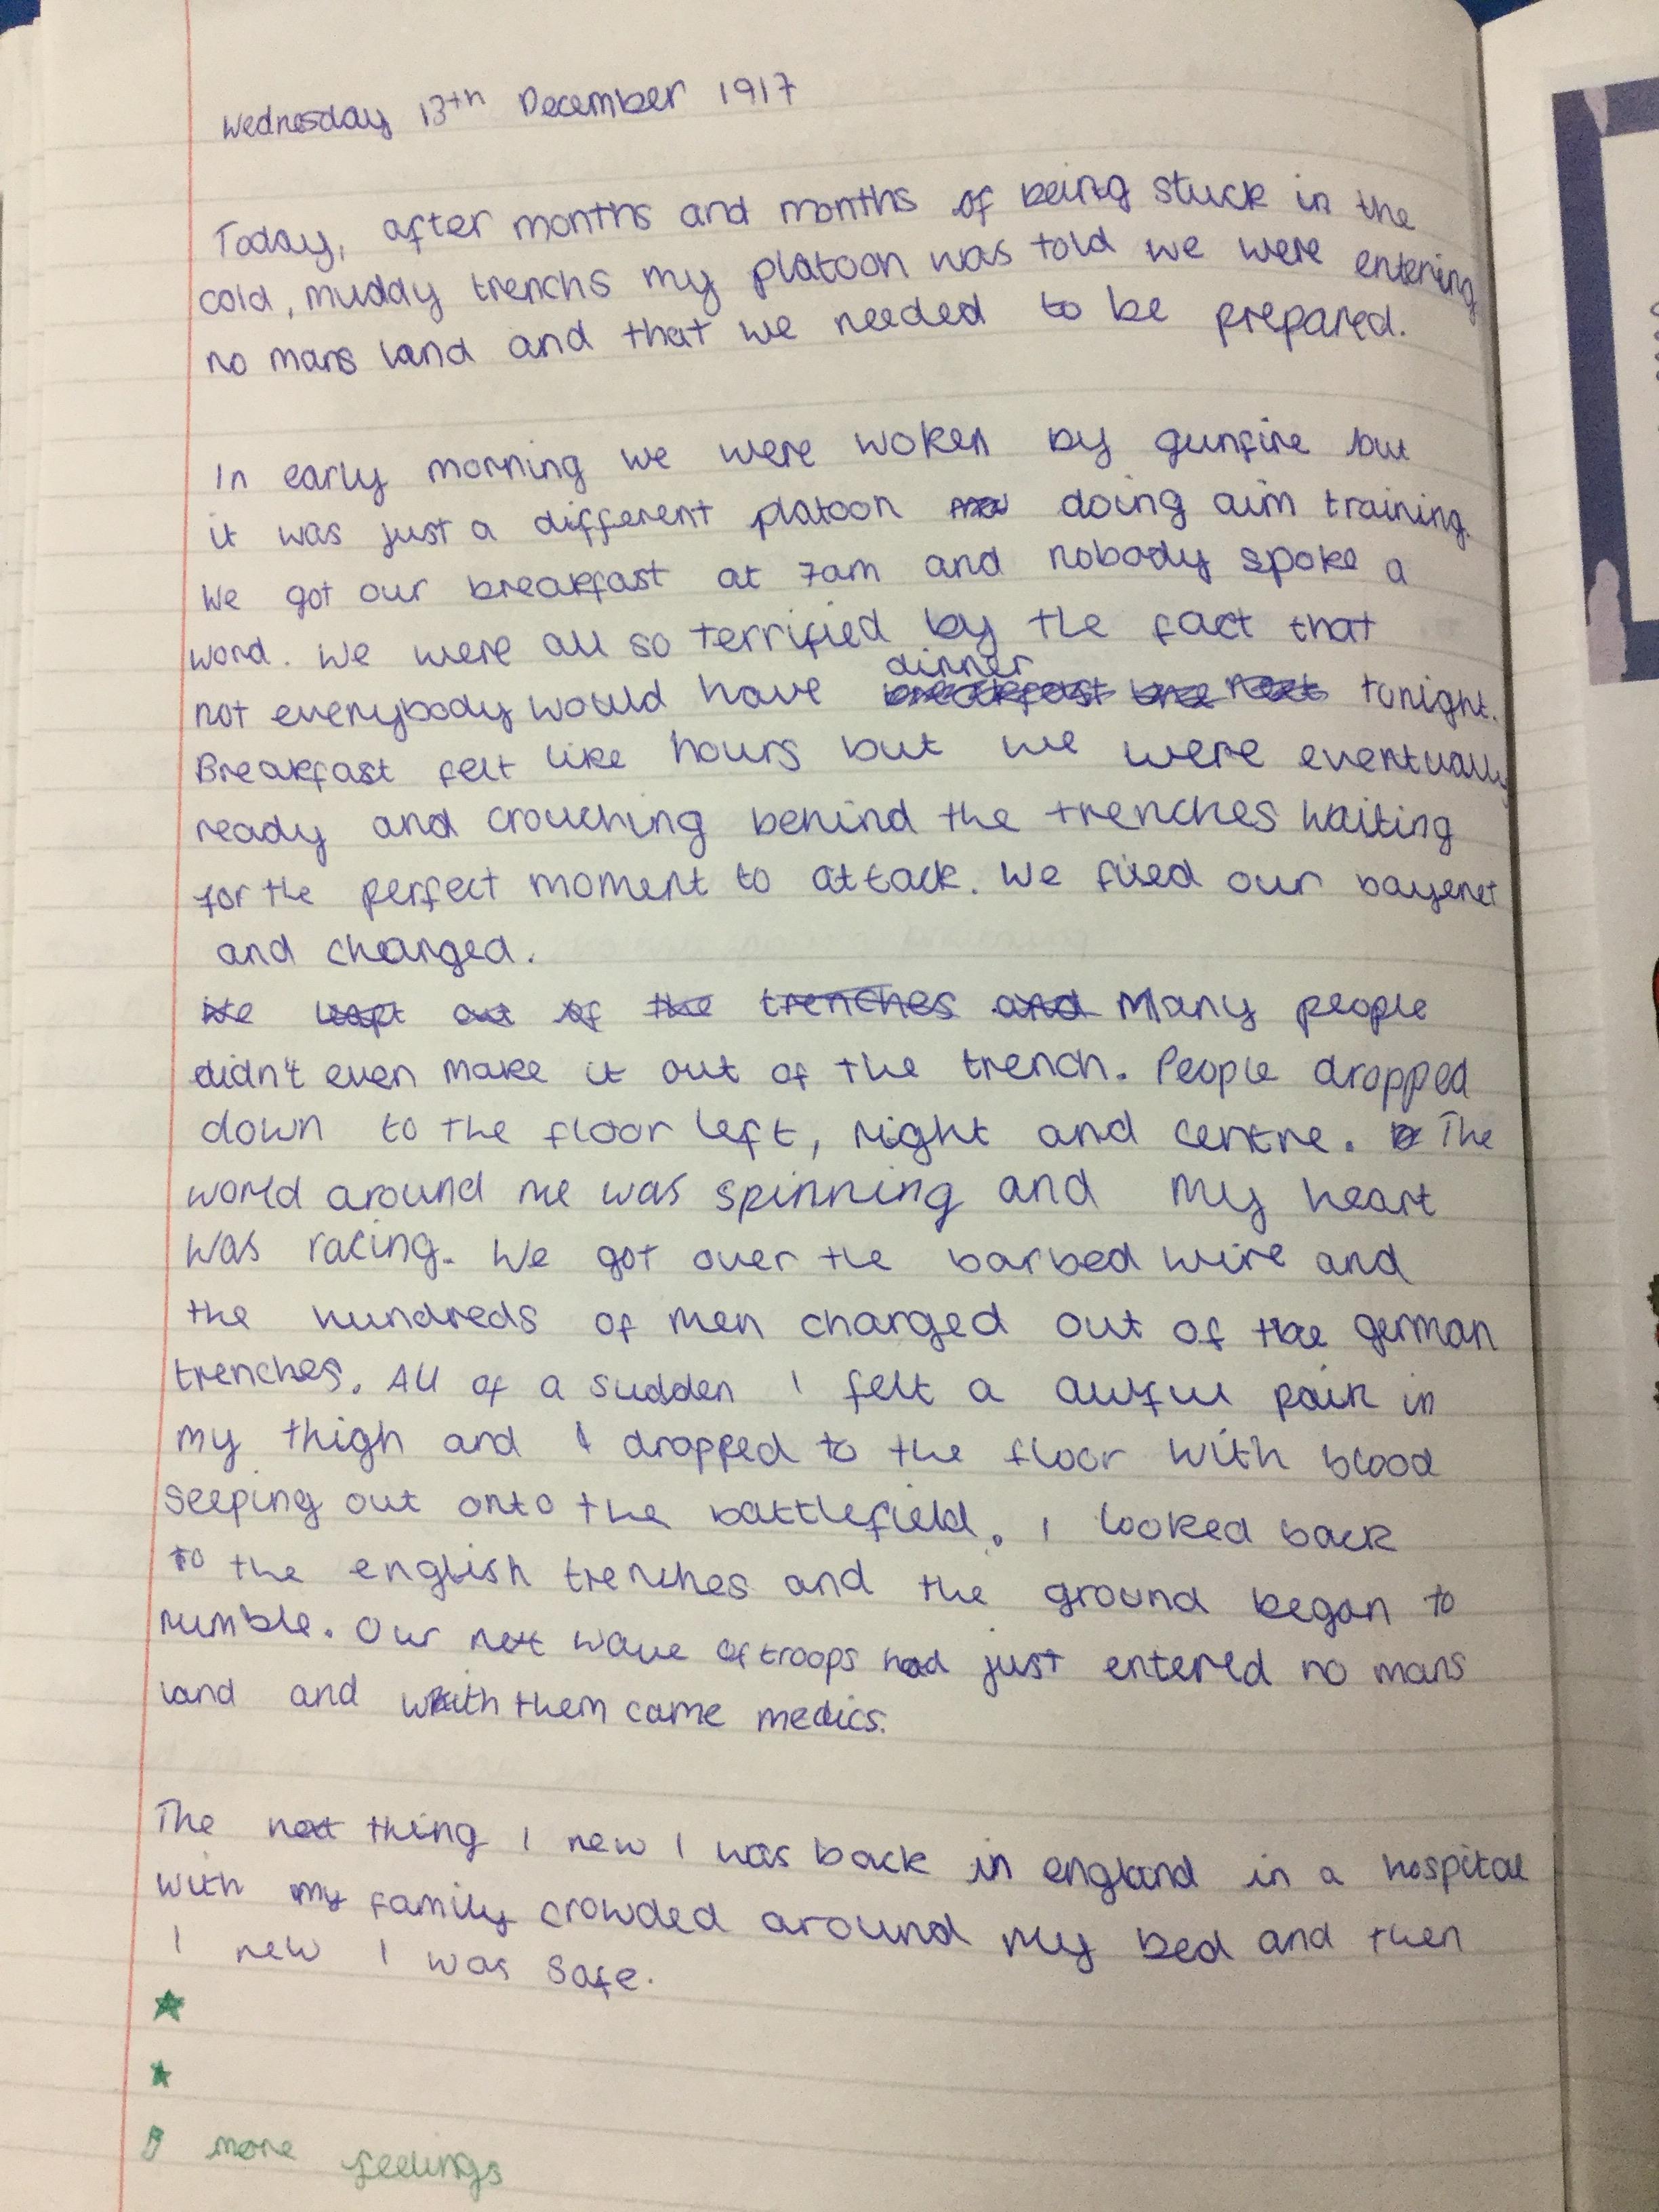 Wednesday 13th December 1917
Today, after months and months of being stuck in the
cold, muddy trenchs my platoon was told we were entering
no mans land and that we needed to be prepared.
In early morning we were woken by gunfire but
it was just a different platoon doing aim training.
We got our breakfast at 7am and nobody spoke a
word. We were all so terrified by the fact that
dinner
not everybody would have breakfast tonight.
Breakfast felt like hours but we were eventually
ready and crouching behind the trenches waiting
for the perfect moment to attack. We fixed our bayenet
and charged.
We leapt out of the trenches and Many people
didn't even make it out of the trench. People dropped
down to the floor left, right and centre. The
world around me was spinning and my heart
was racing. We got over the barbed wire and
the hundreds of men charged out of the german
trenches. All of a sudden I felt a awful pain in
my thigh and I dropped to the floor with blood
seeping out onto the battlefield. I looked back
to the english trenches and the ground began to
rumble. Our next wave of troops had just entered no mans
land and with them came medics.
The next thing I new I was back in england in a hospital
with my family crowded around my bed and then
I new I was safe.
more feelings